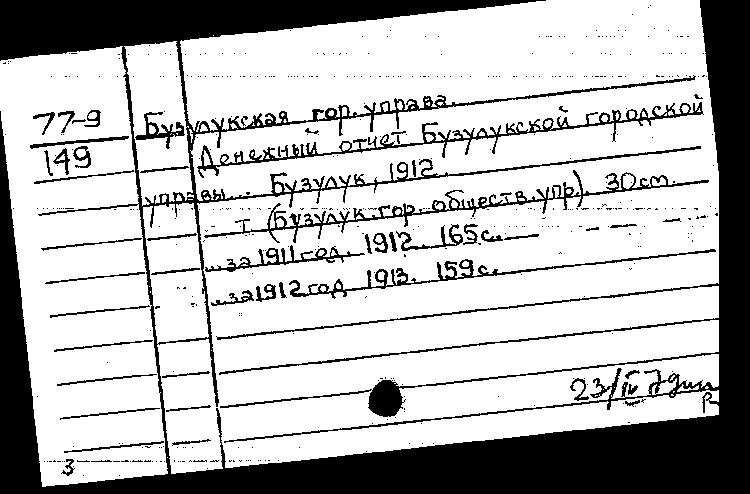 77-9
149
Бузулукская гор. управа.
Денежный отчет Бузулукской городской
управы... Бузулук, 1912
т (Бузулук. гор. обществ. упр). 30 см.
...за 1911 год. 1912. 165 с.
...за 1912 год 1913. 159 с.
23/IV
3